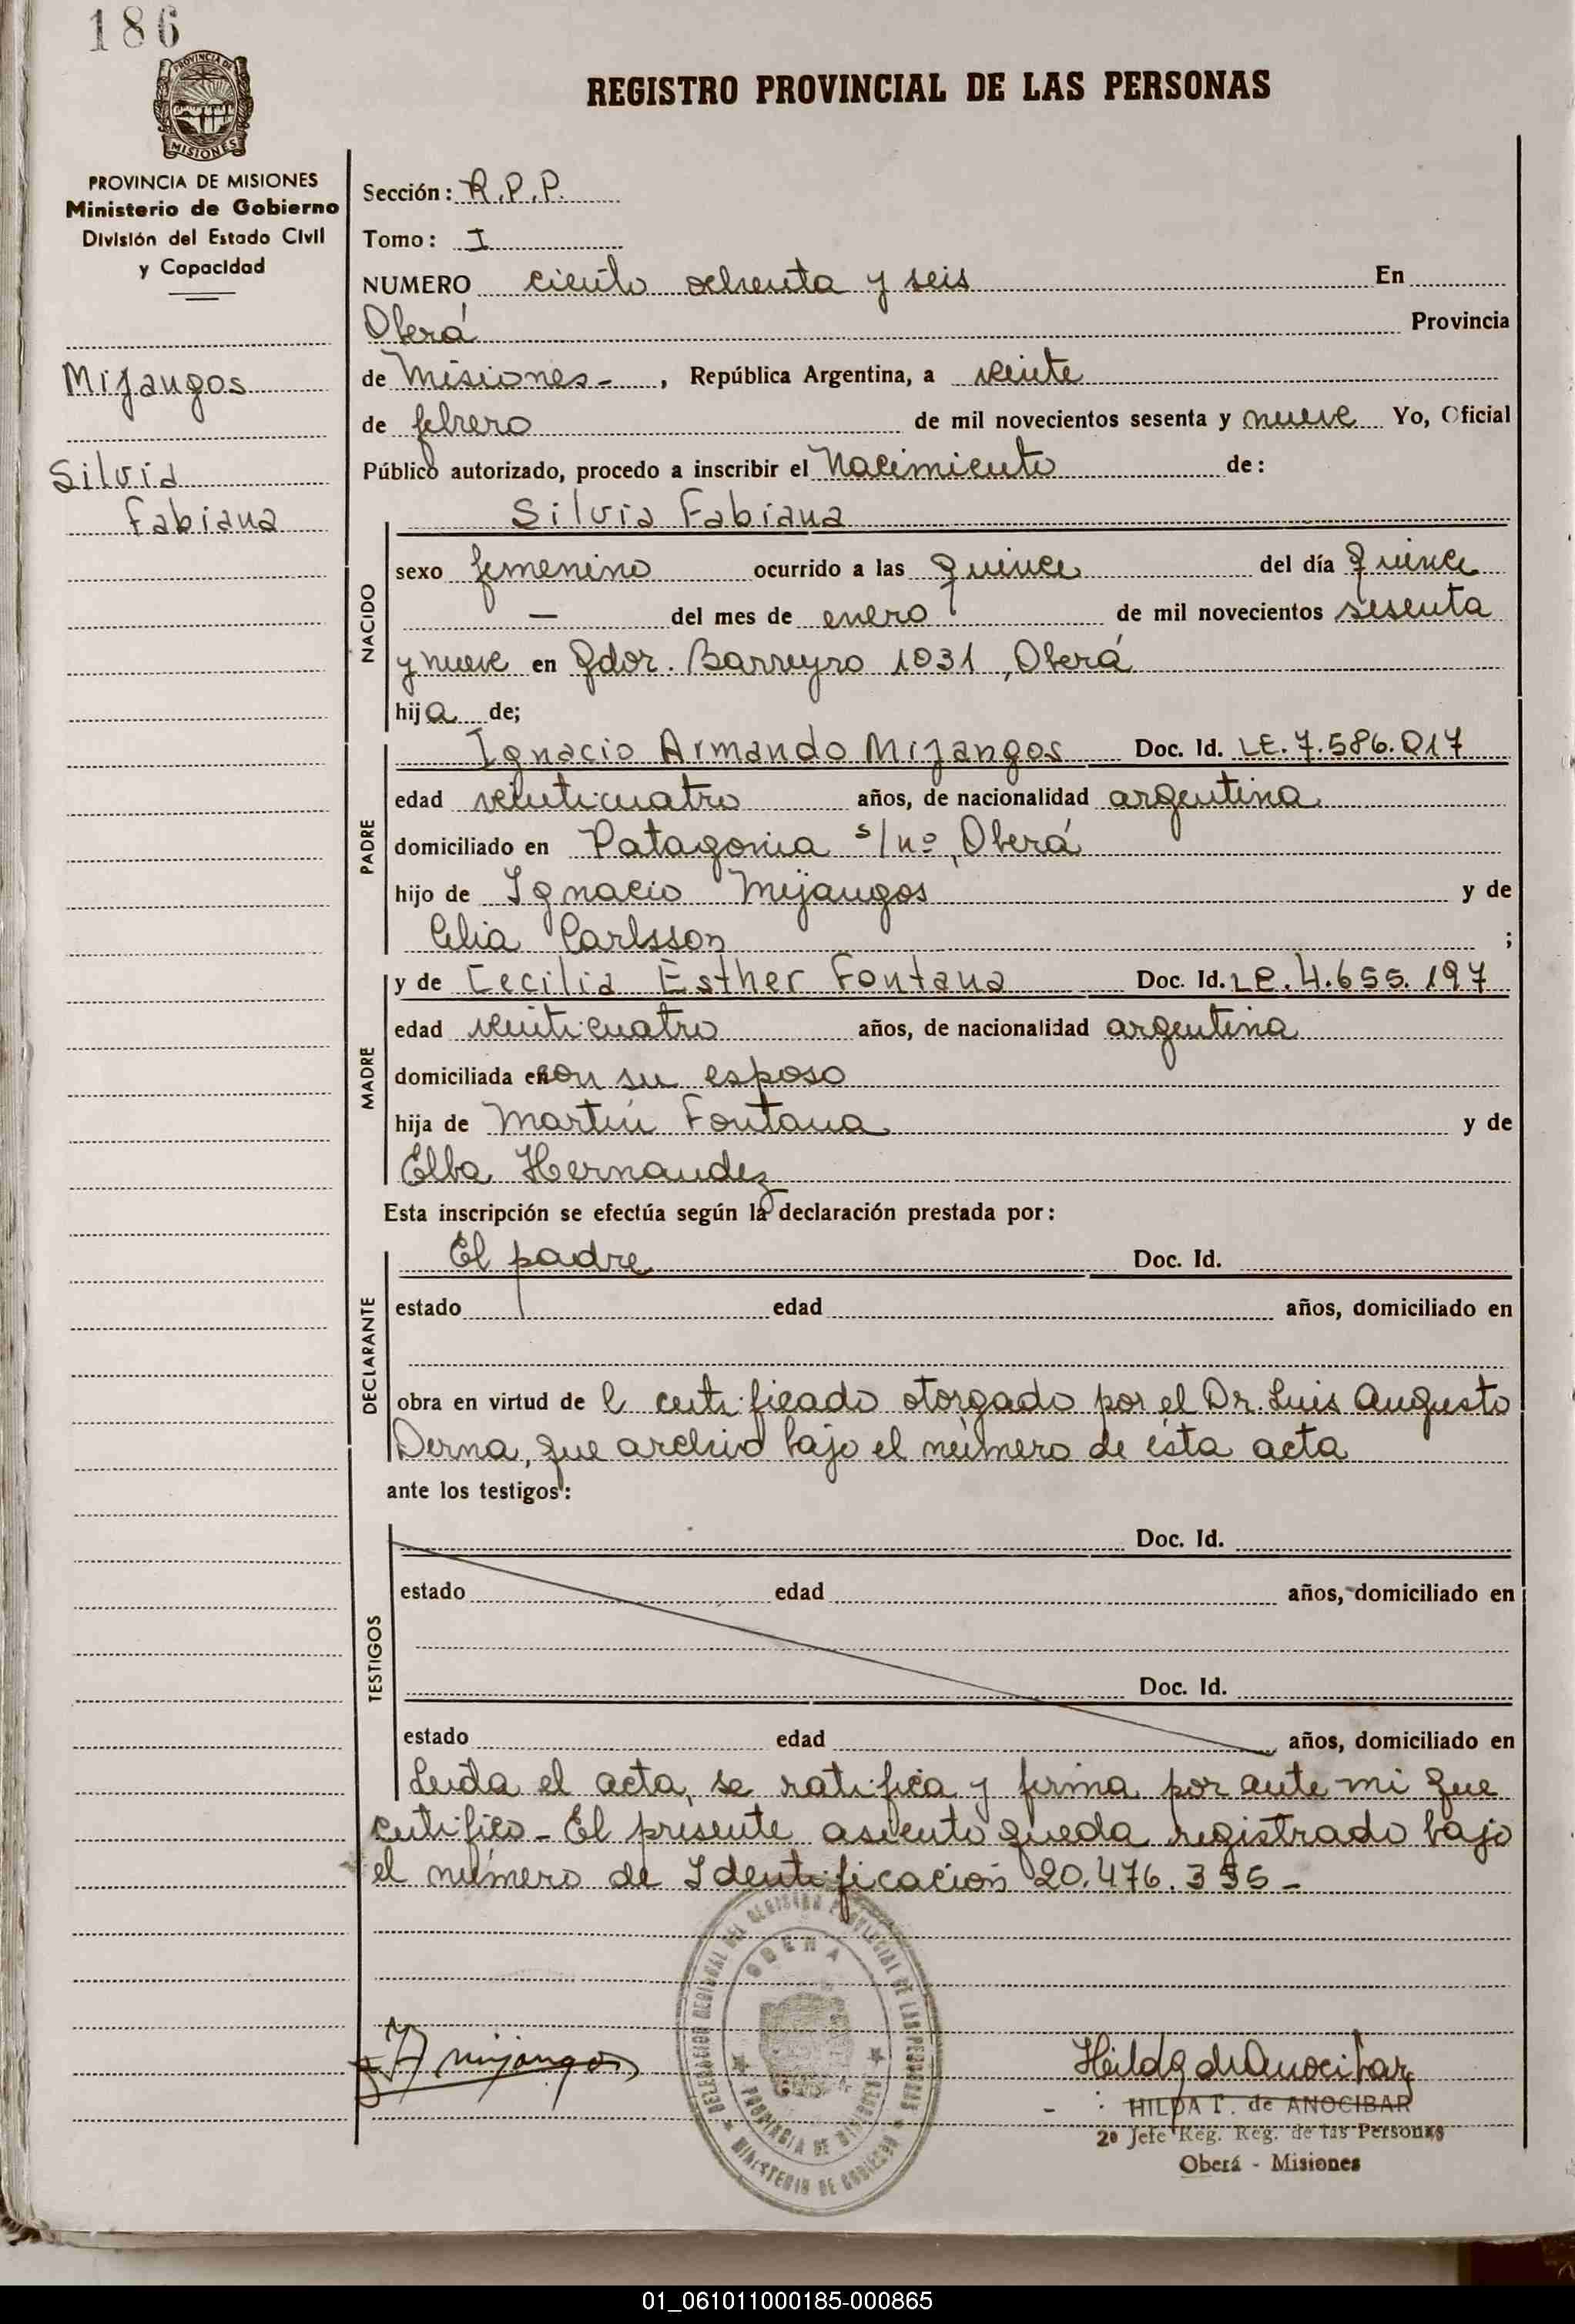 186
PROVINCIA DE
MISIONES
REGISTRO PROVINCIAL DE LAS PERSONAS
PROVINCIA DE MISIONES
Ministerio de Gobierno
División del Estado Civil
y Capacidad
Mijangos
Silvia
Fabiana
Sección: R.P.P.
Tomo: I
NUMERO ciento ochenta y seis En
Oberá Provincia
de Misiones-, República Argentina, a veinte
de febrero de mil novecientos sesenta y nueve Yo, Oficial
Público autorizado, procedo a inscribir el Nacimiento de:
Silvia Fabiana
NACIDO
sexo femenino ocurrido a las quince del día quince
— del mes de enero de mil novecientos sesenta
y nueve en Gdor. Barreyro 1031, Oberá
hija de;
PADRE
Ignacio Armando Mijangos Doc. Id. LE. 7.586.017
edad veinticuatro años, de nacionalidad argentina
domiciliado en Patagonia s/nº, Oberá
hijo de Ignacio Mijangos y de
Celia Carlsson ;
MADRE
y de Cecilia Esther Fontana Doc. Id. LC. 4.655.197
edad veinticuatro años, de nacionalidad argentina
domiciliada en con su esposo
hija de Martín Fontana y de
Elba Hernandez
Esta inscripción se efectúa según la declaración prestada por:
DECLARANTE
El padre Doc. Id.
estado edad años, domiciliado en
obra en virtud de l certificado otorgado por el Dr. Luis Augusto
Derna, que archivo bajo el número de ésta acta
ante los testigos:
TESTIGOS
Doc. Id.
estado edad años, domiciliado en
Doc. Id.
estado edad años, domiciliado en
Leida el acta, se ratifica y firma por ante mi que
certifico - El presente asiento queda registrado bajo
el número de Identificación 20.476.395-
DELEGACION REGIONAL DEL REGISTRO PROVINCIAL DE LAS PERSONAS
OBERA
PROVINCIA DE MISIONES
MINISTERIO DE GOBIERNO
Mijangos
Hilda de Anocibar
HILDA T. de ANOCIBAR
2º Jefe Reg. Reg. de las Personas
Oberá - Misiones
01_061011000185-000865